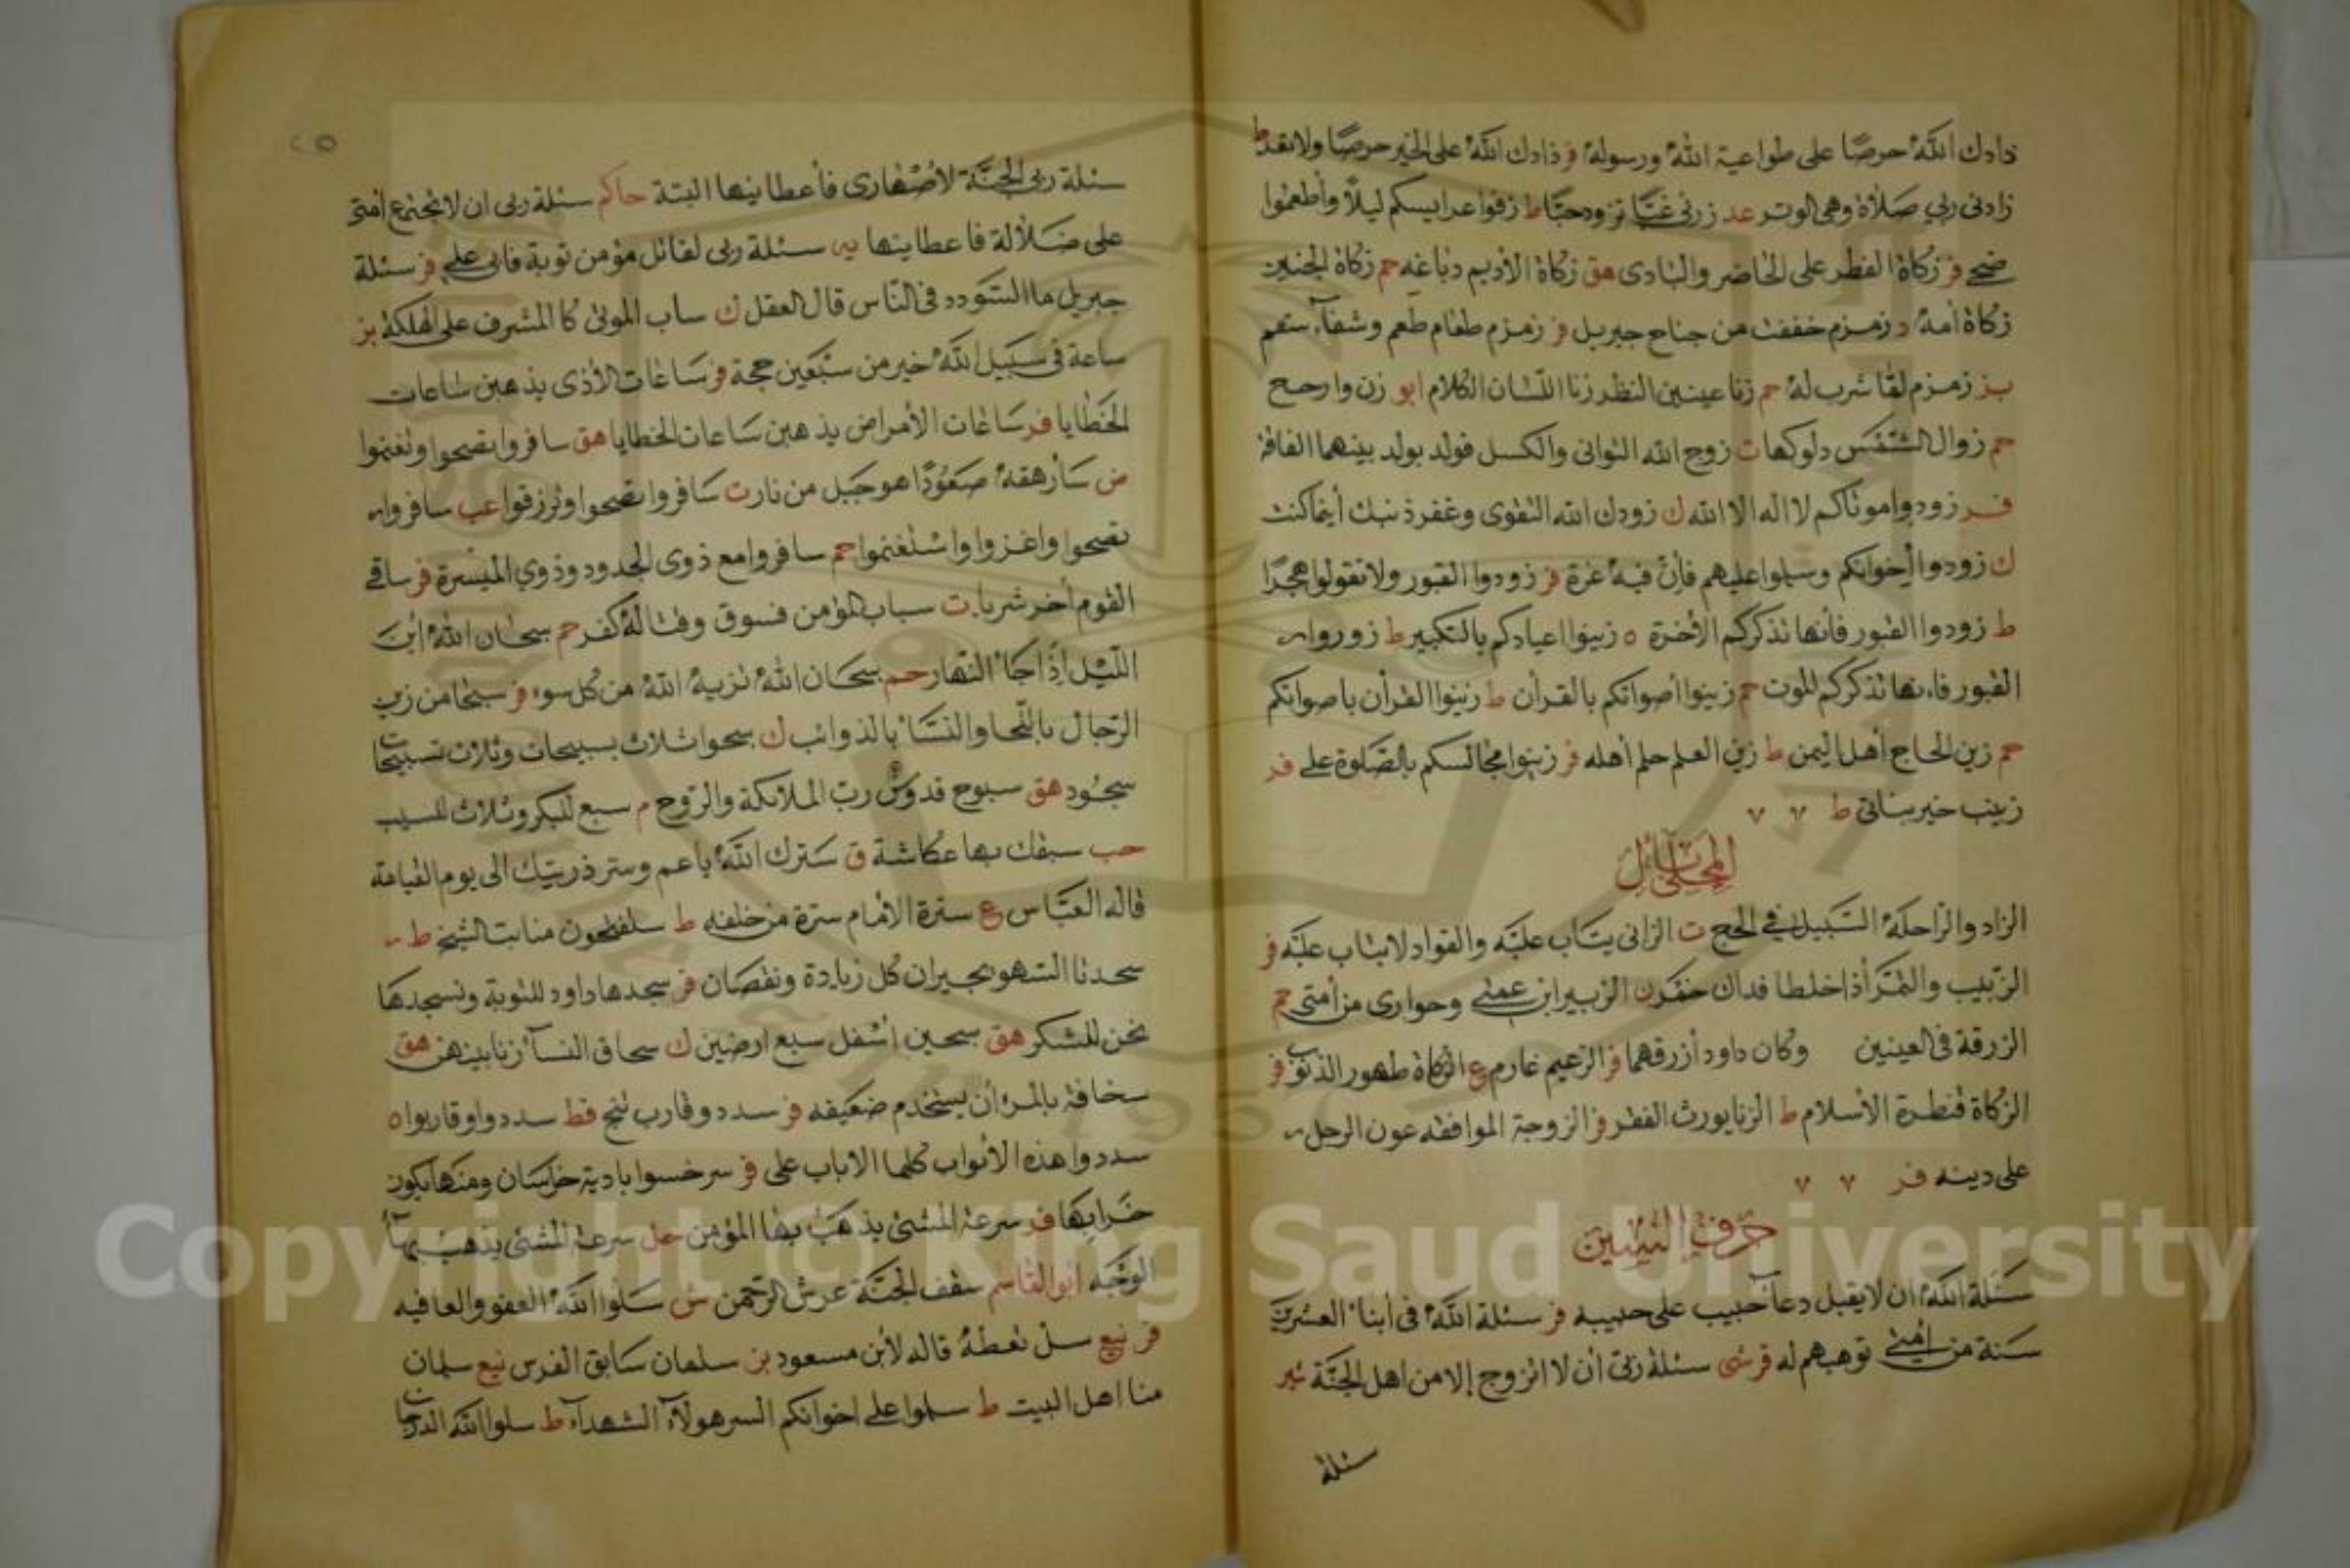 زادك الله حرصا على طواعية الله ورسوله فر زادك الله على الخير حرصا ولا تعد ط
زادنى ربي صلاة وهى الوتر عد زرنى غبا تزود حبا ط زفوا عرايسكم ليلا وأطعموا
ضحى فر زكاة الفطر على الحاضر والبادى هق زكاة الأديم دباغه حم زكاة الجنين
زكاة أمه د زمزم خففت من جناح جبريل فر زمزم طعام طعم وشفاء سقم
بز زمزم لما شرب له حم زنا عينين النظر زنا اللسان الكلام ابو زن وارجح
حم زوال الشمس دلوكها ت زوج الله التوانى والكسل فولد بولد بينهما الفاقة
فر زودوا موتاكم لا اله الا الله ك زودك الله التقوى وغفر ذنبك أينما كنت
ك زودوا أخوانكم وسلموا عليهم فأن فيه عزة فر زودوا القبور ولا تقولوا هجرا
ط زودوا القبور فأنها تذكركم الأخرة ه زينوا اعيادكم بالتكبير ط زوروا
القبور فانها تذكركم الموت حم زينوا أصواتكم بالقرأن ط زينوا القرأن باصواتكم
حم زين الحاج أهل اليمن ط زين العلم حلم أهله فر زينوا مجالسكم بالصلوة على فر
زينب خير بناتى ط ٧ ٧
الزاد والراحلة السبيل في الحج ت الزانى يتاب عليه والقواد لا يتاب عليه فر
الزبيب والتمر أذا خلطا فداك خمر ن الزبير ابن عمتى وحوارى من أمتى حم
الزرقة فى العينين وكان داود أزرقهما فر الزعيم غارم ع الزكاة طهور الذنوب فر
الزكاة قنطرة الأسلام ط الزنا يورث الفقر فر الزوجة الموافقه عون الرجل
على دينه فر ٧ ٧
حرف السين
سئلة الله ان لا يقبل دعاء حبيب على حبيبه فر سئلة الله فى أبناء العشرين
سنة من امتى توهبهم له فر شى سئلة ربى أن لا اتزوج إلا من اهل الجنة شير
سئلة
٢٥
سئلة ربى الجنة لأصهارى فأعطانيها البتة حاكم سئلة ربى ان لا تجتمع امتى
على ضلالة فاعطانيها يه سئلة ربى لقاتل مؤمن توبة فابى على فر سئلة
جبريل ما السودد فى الناس قال العقل ك ساب الموتى كا المشرف على الهلكة بز
ساعة فى سبيل الله خير من سبعين حجة فر ساعات الأذى يذهبن ساعات
الخطايا فر ساعات الأمراض يذهبن ساعات الخطايا هق سافروا تصحوا وتغنموا
ض سأرهقه صعودا هو جبل من نار ت سافروا تصحوا وترزقوا عب سافروا
تصحوا واغزوا واستغنموا حم سافروا مع ذوى الجدود وذوي الميسرة فر ساقى
القوم أخر شربا ت سباب المؤمن فسوق وقتاله كفر حم سبحان الله أين
الليل إذا جاء النهار حم سبحان الله تنزيه الله من كل سوء فر سبحا من زين
الرجال باللحا والنساء بالذوائب ك سبحوا ثلاث بسبيحات وثلاث تسبيحات
سجود هق سبوح قدوس رب الملائكة والروح م سبع للبكر وثلاث للسيب
حب سبقك بها عكاشة ق سترك الله يا عم وستر ذريتك الى يوم القيامة
قاله العباس ع سترة الامام سترة من خلفه ط سلفتحون منابت الشيخ ط
سجدتا السهو تجيران كل زيادة ونقصان فر سجدها داود للتوبة ونسجدها
نحن للشكر هق سجين اسفل سبع ارضين ك سحاق النساء زنا بينهن هق
سخافة بالمرء أن يستخدم ضعيفه فر سدد وقارب تنج قط سددوا وقاربوا ه
سددوا هذه الأبواب كلها الا باب على فر سرخسوا بادية خراسان ومنها يكون
خرابها فر سرعة المشى يذهب بها المؤمن حل سرعة المشى يذهب بهاء
الوجه ابو القاسم سقف الجنة عرش الرحمن ش سلوا الله العفو والعافيه
فر نيع سل تعطه قاله لأبن مسعود بز سلمان سابق الفرس نيع سلمان
منا اهل البيت ط سلموا على اخوانكم السر هولاء الشهداء ط سلوا الله الدرجات